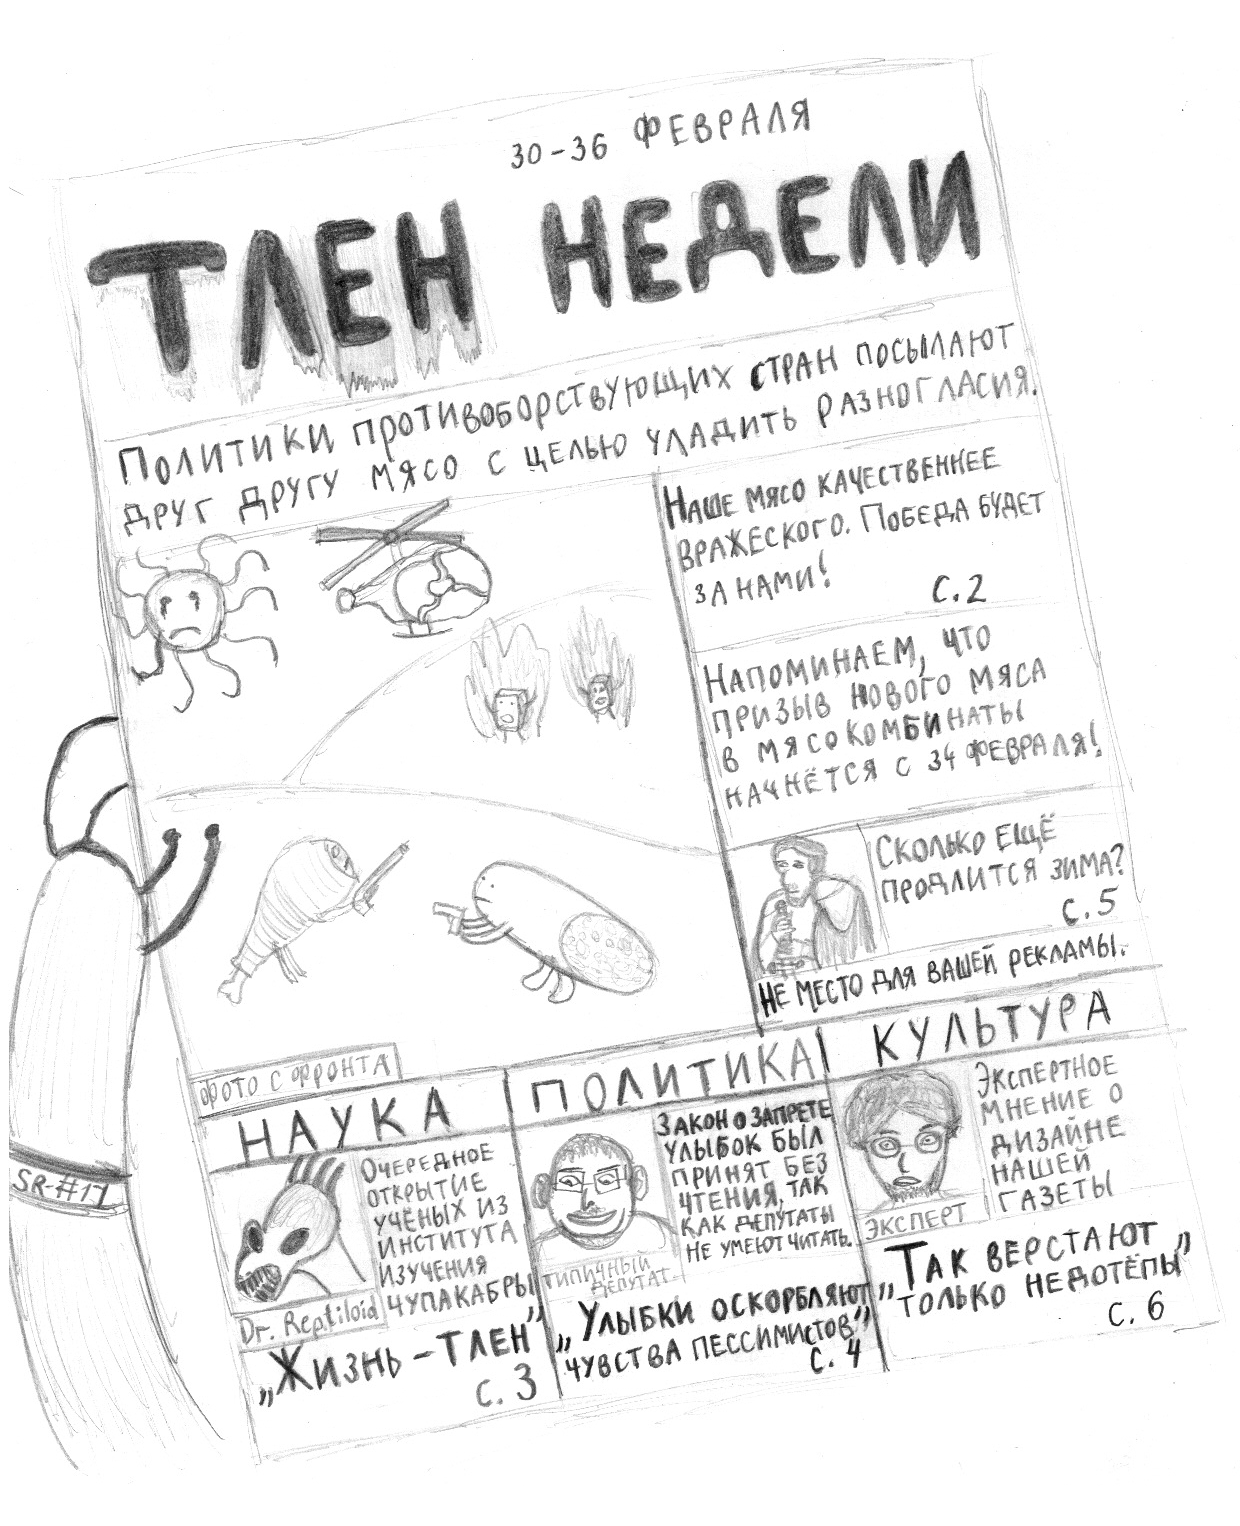 30-36 ФЕВРАЛЯ
ТЛЕН НЕДЕЛИ
ПОЛИТИКИ ПРОТИВОБОРСТВУЮЩИХ СТРАН ПОСЫЛАЮТ
ДРУГ ДРУГУ МЯСО С ЦЕЛЬЮ УЛАДИТЬ РАЗНОГЛАСИЯ.
НАШЕ МЯСО КАЧЕСТВЕННЕЕ
ВРАЖЕСКОГО. ПОБЕДА БУДЕТ
ЗА НАМИ!
С.2
НАПОМИНАЕМ, ЧТО
ПРИЗЫВ НОВОГО МЯСА
В МЯСОКОМБИНАТЫ
НАЧНЁТСЯ С 34 ФЕВРАЛЯ!
СКОЛЬКО ЕЩЁ
ПРОДЛИТСЯ ЗИМА?
С.5
НЕ МЕСТО ДЛЯ ВАШЕЙ РЕКЛАМЫ.
ФОТО С ФРОНТА
НАУКА
ОЧЕРЕДНОЕ
ОТКРЫТИЕ
УЧЁНЫХ ИЗ
ИНСТИТУТА
ИЗУЧЕНИЯ
ЧУПАКАБРЫ
Dr. Reptiloid
„ЖИЗНЬ – ТЛЕН”
С.3
ПОЛИТИКА
ЗАКОН О ЗАПРЕТЕ
УЛЫБОК БЫЛ
ПРИНЯТ БЕЗ
ЧТЕНИЯ, ТАК
КАК ДЕПУТАТЫ
НЕ УМЕЮТ ЧИТАТЬ.
ТИПИЧНЫЙ
ДЕПУТАТ
„УЛЫБКИ ОСКОРБЛЯЮТ
ЧУВСТВА ПЕССИМИСТОВ”
С.4
КУЛЬТУРА
ЭКСПЕРТНОЕ
МНЕНИЕ О
ДИЗАЙНЕ
НАШЕЙ
ГАЗЕТЫ
ЭКСПЕРТ
„ТАК ВЕРСТАЮТ
ТОЛЬКО НЕДОТЁПЫ”
С. 6
SR-#17